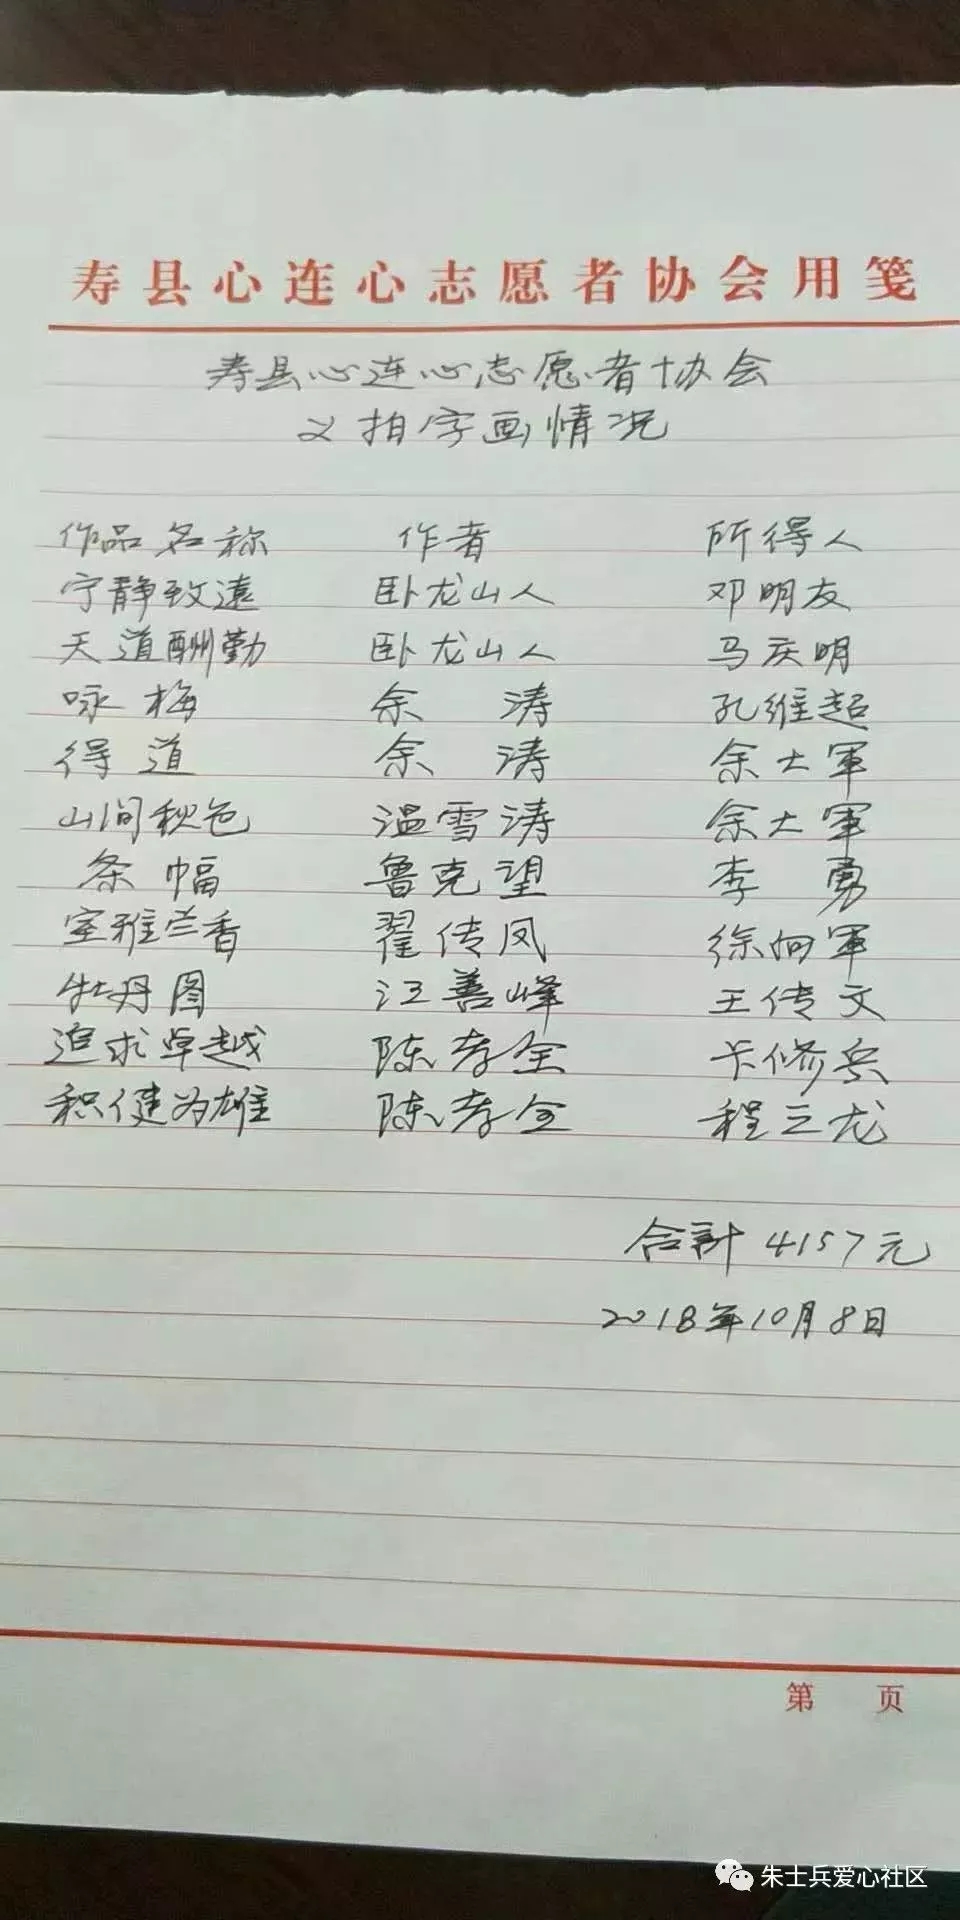 寿县心连心志愿者协会用笺
寿县心连心志愿者协会
义拍字画情况
作品名称 作者 所得人
宁静致遠 卧龙山人 邓明友
天道酬勤 卧龙山人 马庆明
咏梅 余涛 孔维超
得道 余涛 余大軍
山间秋色 温雪涛 余大軍
条幅 鲁克望 李勇
室雅兰香 翟传凤 徐向軍
牡丹图 汪善峰 王传文
追求卓越 陈孝全 卞修兵
积健为雄 陈孝全 程云龙
合計 4157元
2018年10月8日
第 页
朱士兵爱心社区